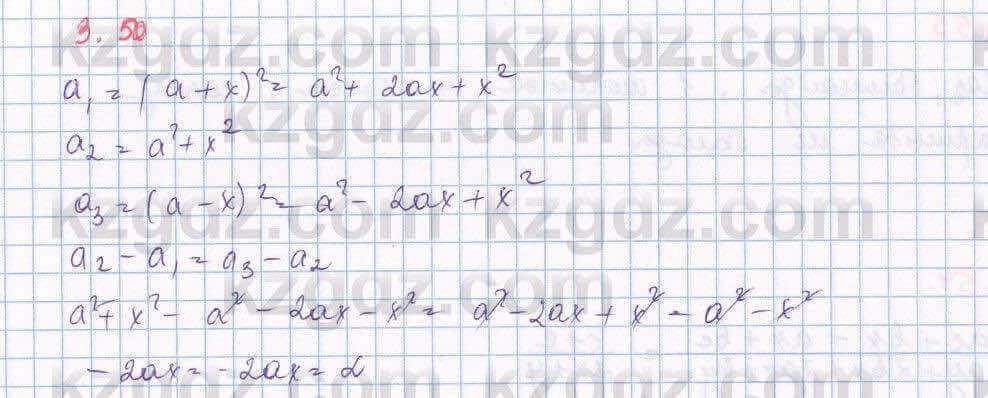 3.50
a₁ = (a + x)² = a² + 2ax + x²
a₂ = a² + x²
a₃ = (a - x)² = a² - 2ax + x²
a₂ - a₁ = a₃ - a₂
a² + x² - a² - 2ax - x² = a² - 2ax + x² - a² - x²
- 2ax = - 2ax = d
kzgdz.com
kzgdz.com
kzgdz.com
kzgdz.com
kzgdz.com